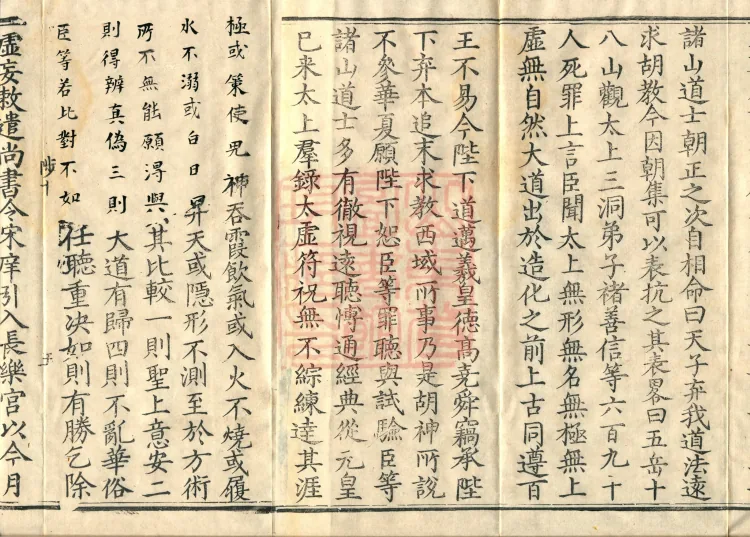 諸山道士朝正之次自相命曰天子弃我道法遠
求胡教今因朝集可以表抗之其表畧曰五岳十
八山觀太上三洞弟子褚善信等六百九十
人死罪上言臣聞太上無形無名無極無上
虛無自然大道出於造化之前上古同遵百
王不易今陛下道邁羲皇德高堯舜竊承陛
下弃本追末求教西域所事乃是胡神所說
不參華夏願陛下恕臣等罪聽與試驗臣等
諸山道士多有徹視遠聽博通經典從元皇
已来太上羣錄太虛符祝無不綜練達其涯
極或策使鬼神吞霞飲氣或入火不燒或履
水不溺或白日昇天或隱形不測至於方術
所不無能願得與其比較一則聖上意安二
則得辨真偽三則大道有歸四則不亂華俗
臣等若比對不如任聽重决如則有勝乞除
虛妄敕遣尚書令宋庠引入長樂宮以今月